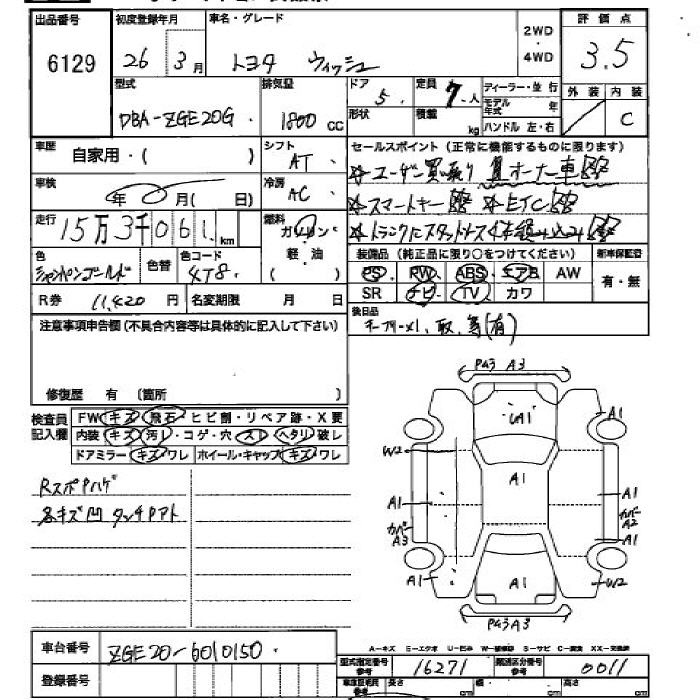 出品番号 初度登録年月 車名・グレード 2WD・4WD 評価点
6129 26年 3月 トヨタ ウィッシュ 3.5
型式 排気量 ドア 定員 ディーラー・並行 外装 内装
DBA-ZGE20G 1800cc 5 7人 モデル年式 年 C
形状 積載 kg ハンドル 左・右
車歴 自家用・( ) シフト AT セールスポイント(正常に機能するものに限ります)
☆ユーザー買取り
オーナー車
車検 年 月(日) 冷房 AC ☆スマートキー ☆ETC
走行 15万3千061km 燃料 ガソリン ☆トランクにスタッドレス4本積み込み
色 シャンパンゴールド 色替 色コード 4T8 軽・油( ) 装備品(純正品に限り○をつけてください) 新車保証書
PS PW ABS エアB AW 有・無
R券 11,420円 名変期限 月 日 SR ナビ TV カワ
注意事項申告欄(不具合内容等は具体的に記入して下さい) 後日品
キーフリー×1、取、各(有)
修復歴 有 (箇所 )
検査員記入欄 FW キズ・飛石・ヒビ割・リペア跡・X要
内装 キズ・汚れ・コゲ・穴・スレ・ヘタリ・破レ
ドアミラー キズ・ワレ ホイール・キャップ キズ・ワレ
RスポPハゲ
各キズ凹 タッチPアト
PA3 A3
UA1
A1
W2
A1
A1
A1
カバーA3
カバーA2
A1
A1
U12
PA3 A3
A-キズ E-エクボ U-凹み W-補修跡 S-サビ C-腐食 XX-交換済
車台番号 ZGE20-6010150
型式指定番号 16271 類別区分番号 0011
登録番号
車庫証明用参考 長さ cm 幅 cm 高さ cm